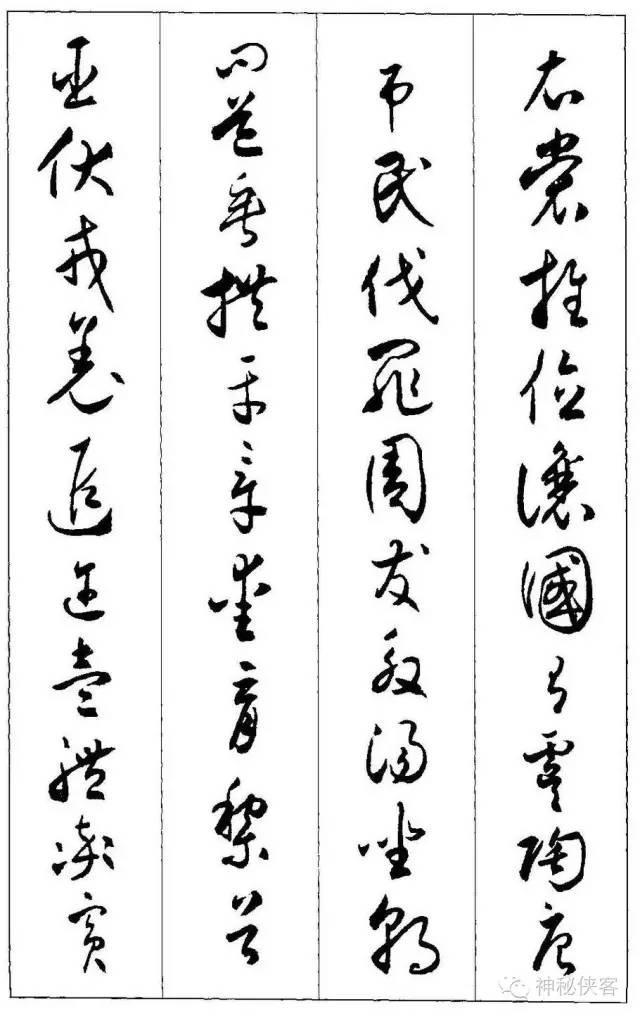 衣裳推位讓國有虞陶唐
吊民伐罪周發殷湯坐朝
問道垂拱平章愛育黎首
臣伏戎羌遐邇壹體率賓
神秘侠客